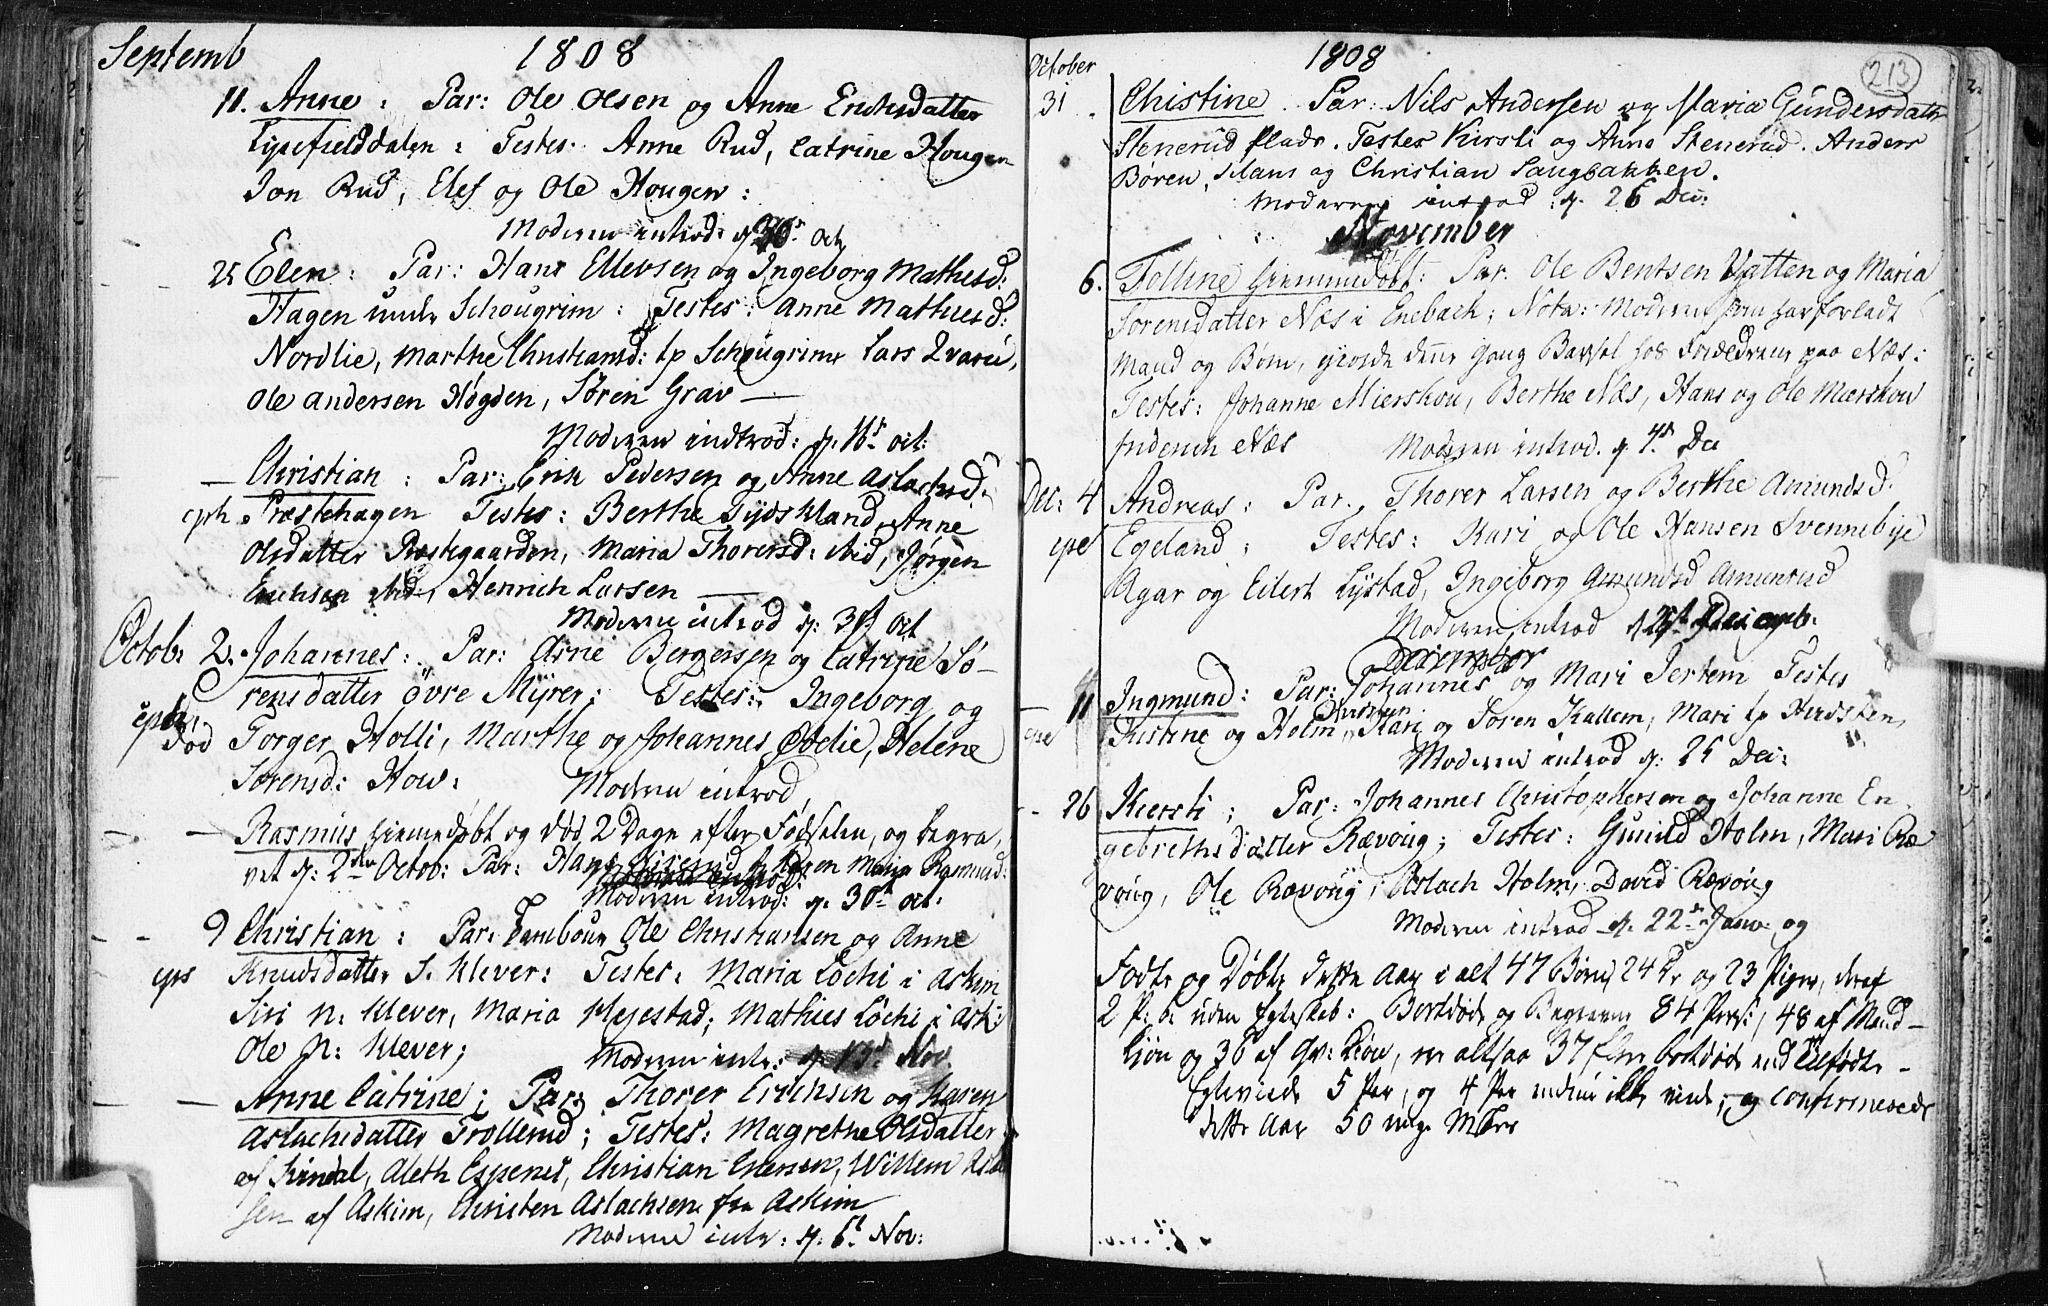 Septemb 1808
11. Anne: Par: Ole Olsen og Anne Erichsdatter
Testes: Anne Rud, Catrine Hougen
Jon Rud, Elef og Ole Hougen:
Moderen introd: d. 30t oct
25 Elen: Par: Hans Ellevsen og Ingeborg Mathisd:
Hagen under Schougrim: Testes: Anne Mathisd:
Nordlie, Marthe Christiansd: Schougrim Lars
Ole Andersen Høgden, Søren Grav —
Moderen indtrod: d. 16t oct:
— Christian: Par: Erik Pedersen og Anne Aslachsd.
Præstehagen Testes: Berthe Tydskland, Anne
Olsdatter Præstegaarden, Maria Thorersd: ibid, Jørgen
Erichsen ibid, Henrich Larsen —
Moderen introd d: 30t oct
Octob: 2. Johannes: Par: Arne Bergersen og Catrine Sø-
rensdatter øvre Myrer: Testes: Ingeborg og
død Torger Holli, Marthe og Johannes Odelie, Helene
Sørensd: How:
Moderen introd
— — Rasmus hiemmedøbt og død 2 Dage efter Fødselen, og begra-
vet d: 2den Octob: Par: Hans Karen Maria Rasmusd:
Moderen introd: d. 30t oct:
- - 9 Christian: Par: Tambour Ole Christiansen og Anne
Knudsdatter S. Klever: Testes: Maria Løchi i Askim
Siri N: Klever, Maria Mejestad; Mathies Løchi i Ask:
Ole N: Klever;
Moderen intr: d. 13d Nov.
— — Anne Catrine; Par: Thorer Erichsen og Karen
Aslachsdatter Trollerud; Testes: Magrethe Olsdatter
af Kindal, Aleth Espenes, Christian Evensen, Willem Asla
sen af Askim, Christen Aslachsen fra Askim
Moderne intr: d: 6t Nov:
October 1808 213
31. Christine. Par: Nils Andersen og Maria Gundersdatter
Stenerud Plads. Testes Kirsti og Anne Stenerud. Anders
Børen, Hans og Christian Saugbakken.
Moderen introd: d. 26 Dec:
November
6. hiemmedøbt: Par. Ole Bentsen Vatten og Maria
Sørensdatter Næs i Enebach; Nota: Moderen som har forladt
Mand og Børn, giorde denne Gang Barsel hos paa Næs:
Testes: Johanne Mierskou, Berthe Næs, Hans og Ole Mierskou
friderich Næs Moderen introd. d. 4d Dec
Dec: 4 Andreas: Par. Thorer Larsen og Berthe Amundsd.
Egeland; Testes: Kari og Ole Hansen Svennebye
Agar og Eilert Lystad, Ingeborg Amundsd Amundrud
Moderen introd d Decemb:
December
— 11 Ingmund: Par: Johannes og Mari Jertem Testes
Kistine og Holm, Kari og Søren Kallem, Mari
Moderen introd d: 25 Dec:
- 26 Kiersti; Par: Johannes Christophersen og Johanne En-
gebrethsdatter Rævoug; Testes: Gunild Holm, Mari Ræ
voug, Ole Rævoug, Aslach Holm, David Rævoug
Moderen introd d. 22d Janv: og
Fødte og Døbte dette Aar i alt 47 Børn, 24 Dr og 23 Piger, deraf
2 P: b: uden Egteskab: Bortdøde og Begravne 84 Pers:, 48 af Mand-
kiøn og 36 af Qv: kiøn, er altsaa 37 flere bortdøde end tilfødte -
Egteviede 5 Par, og 4 Par endnu ikke viede; og confirmerede
dette Aar 50 unge M